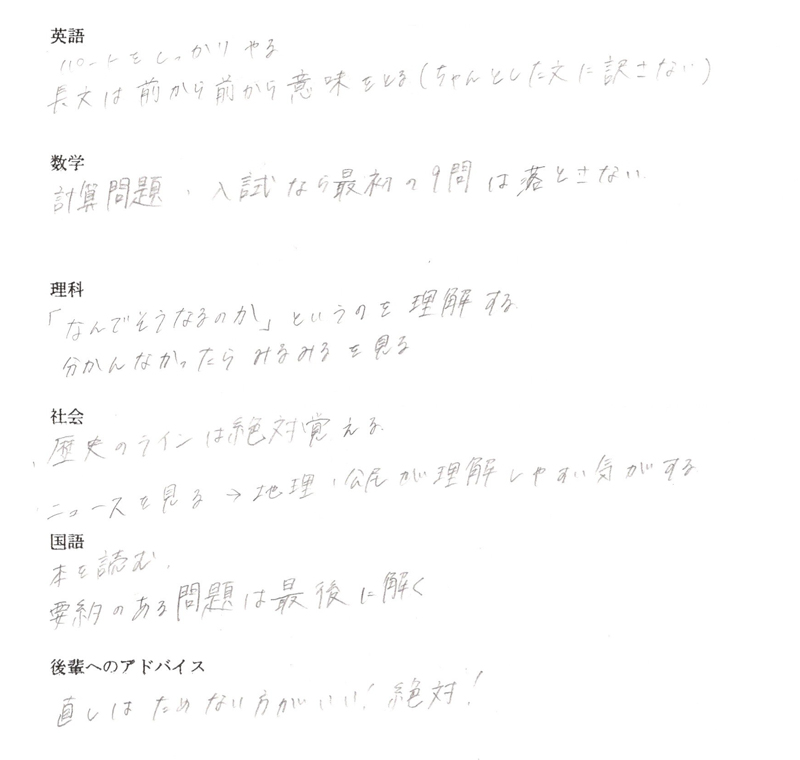 英語
パートをしっかりやる
長文は前から前から意味をとる(ちゃんとした文に訳さない)
数学
計算問題、入試なら最初の9問は落とさない
理科
「なんでそうなるのか」というのを理解する
分かんなかったらみるみるを見る
社会
歴史のラインは絶対覚える
ニュースを見る→地理・公民が理解しやすい気がする
国語
本を読む、
要約のある問題は最後に解く
後輩へのアドバイス
直しはためない方がいい!絶対!